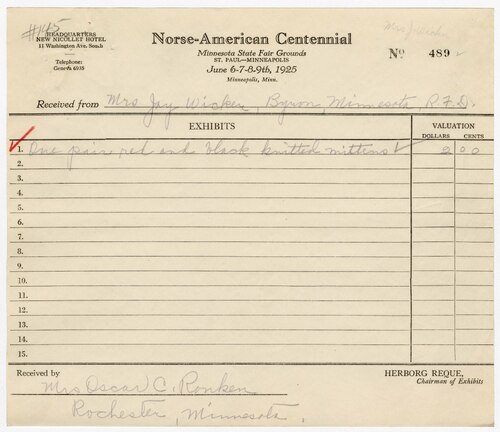 #145
HEADQUARTERS
NEW NICOLLET HOTEL
11 Washington Ave. South
Telephone:
Geneva 6935
Norse-American Centennial
Minnesota State Fair Grounds
ST. PAUL—MINNEAPOLIS
June 6-7-8-9th, 1925
Minneapolis, Minn.
Mrs J Wicker
No 489
Received from Mrs Jay Wicker, Byron, Minnesota, R.F.D.
EXHIBITS
VALUATION
DOLLARS CENTS
1. One pair red and black knitted mittens 2 00
2.
3.
4.
5.
6.
7.
8.
9.
10.
11.
12.
13.
14.
15.
Received by
Mrs Oscar C. Ronken
Rochester, Minnesota.
HERBORG REQUE,
Chairman of Exhibits